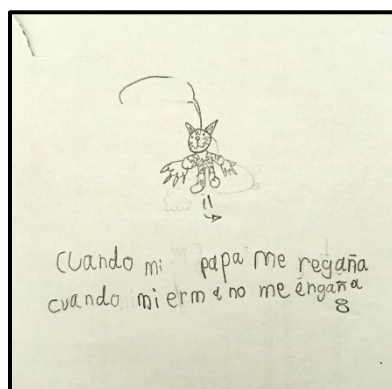 cuando mi papa me regaña
cuando mi ermano me engaña
8